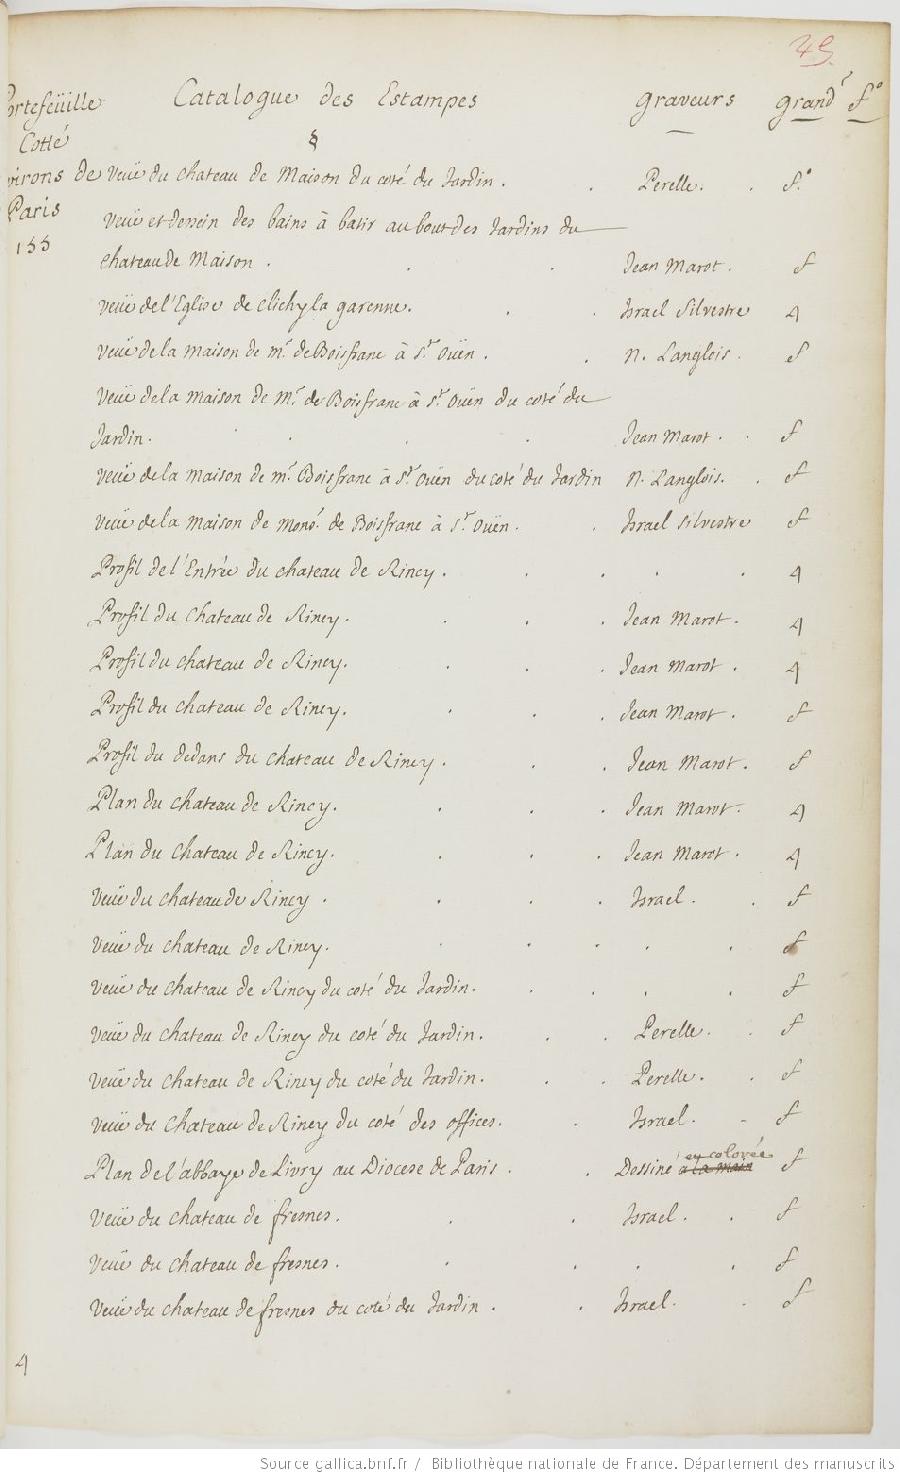 49.
Portefeüille Catalogue des Estampes graveurs grandr fo
Cotté §
Environs de Veüe du chateau de Maison du coté du Jardin . . Perelle . . fo
Paris
Veüe et dessein des bains à batir au bout des Jardins du
133
chateau de Maison . . . Jean Marot . f
Veüe de l'Eglise de clichy la garenne . . . Israel Silvestre 4
Veüe de la maison de mr. de Boisfranc à St. Oüen . . N. Langlois . f
Veüe de la maison de Mr. de Boisfranc à St. Oüen du coté du
Jardin . . . . . Jean Marot . . f
Veüe de la maison de mr. Boisfranc à St. Oüen du coté du Jardin N. Langlois . . f
Veüe de la maison de monsr. de Boisfranc à St. Oüen . . Israel silvestre f
Profil de l'Entrée du chateau de Rincy . . . . . 4
Profil du chateau de Rincy . . . . Jean Marot . 4
Profil du chateau de Rincy . . . . Jean Marot . 4
Profil du chateau de Rincy . . . . Jean Marot . f
Profil du dedans du chateau de Rincy . . . Jean Marot . f
Plan du chateau de Rincy . . . . Jean Marot . 4
Plan du chateau de Rincy . . . . Jean Marot . 4
Veüe du chateau de Rincy . . . . Israel . . f
Veüe du chateau de Rincy . . . . . . f
Veüe du chateau de Rincy du coté du Jardin . . . . . f
Veüe du chateau de Rincy du coté du Jardin . . . Perelle . . f
Veüe du chateau de Rincy du coté du Jardin . . . Perelle . . f
Veüe du chateau de Rincy du coté des offices . . Israel . . f
en colorée
Plan de l'abbaye de Livry au Diocese de Paris . . Dessiné à la main f
Veüe du chateau de fresnes . . . Israel . . f
Veüe du chateau de fresnes . . . . . f
Veüe du chateau de fresnes du coté du Jardin . . Israel . . f
4
Source gallica.bnf.fr / Bibliothèque nationale de France. Département des manuscrits